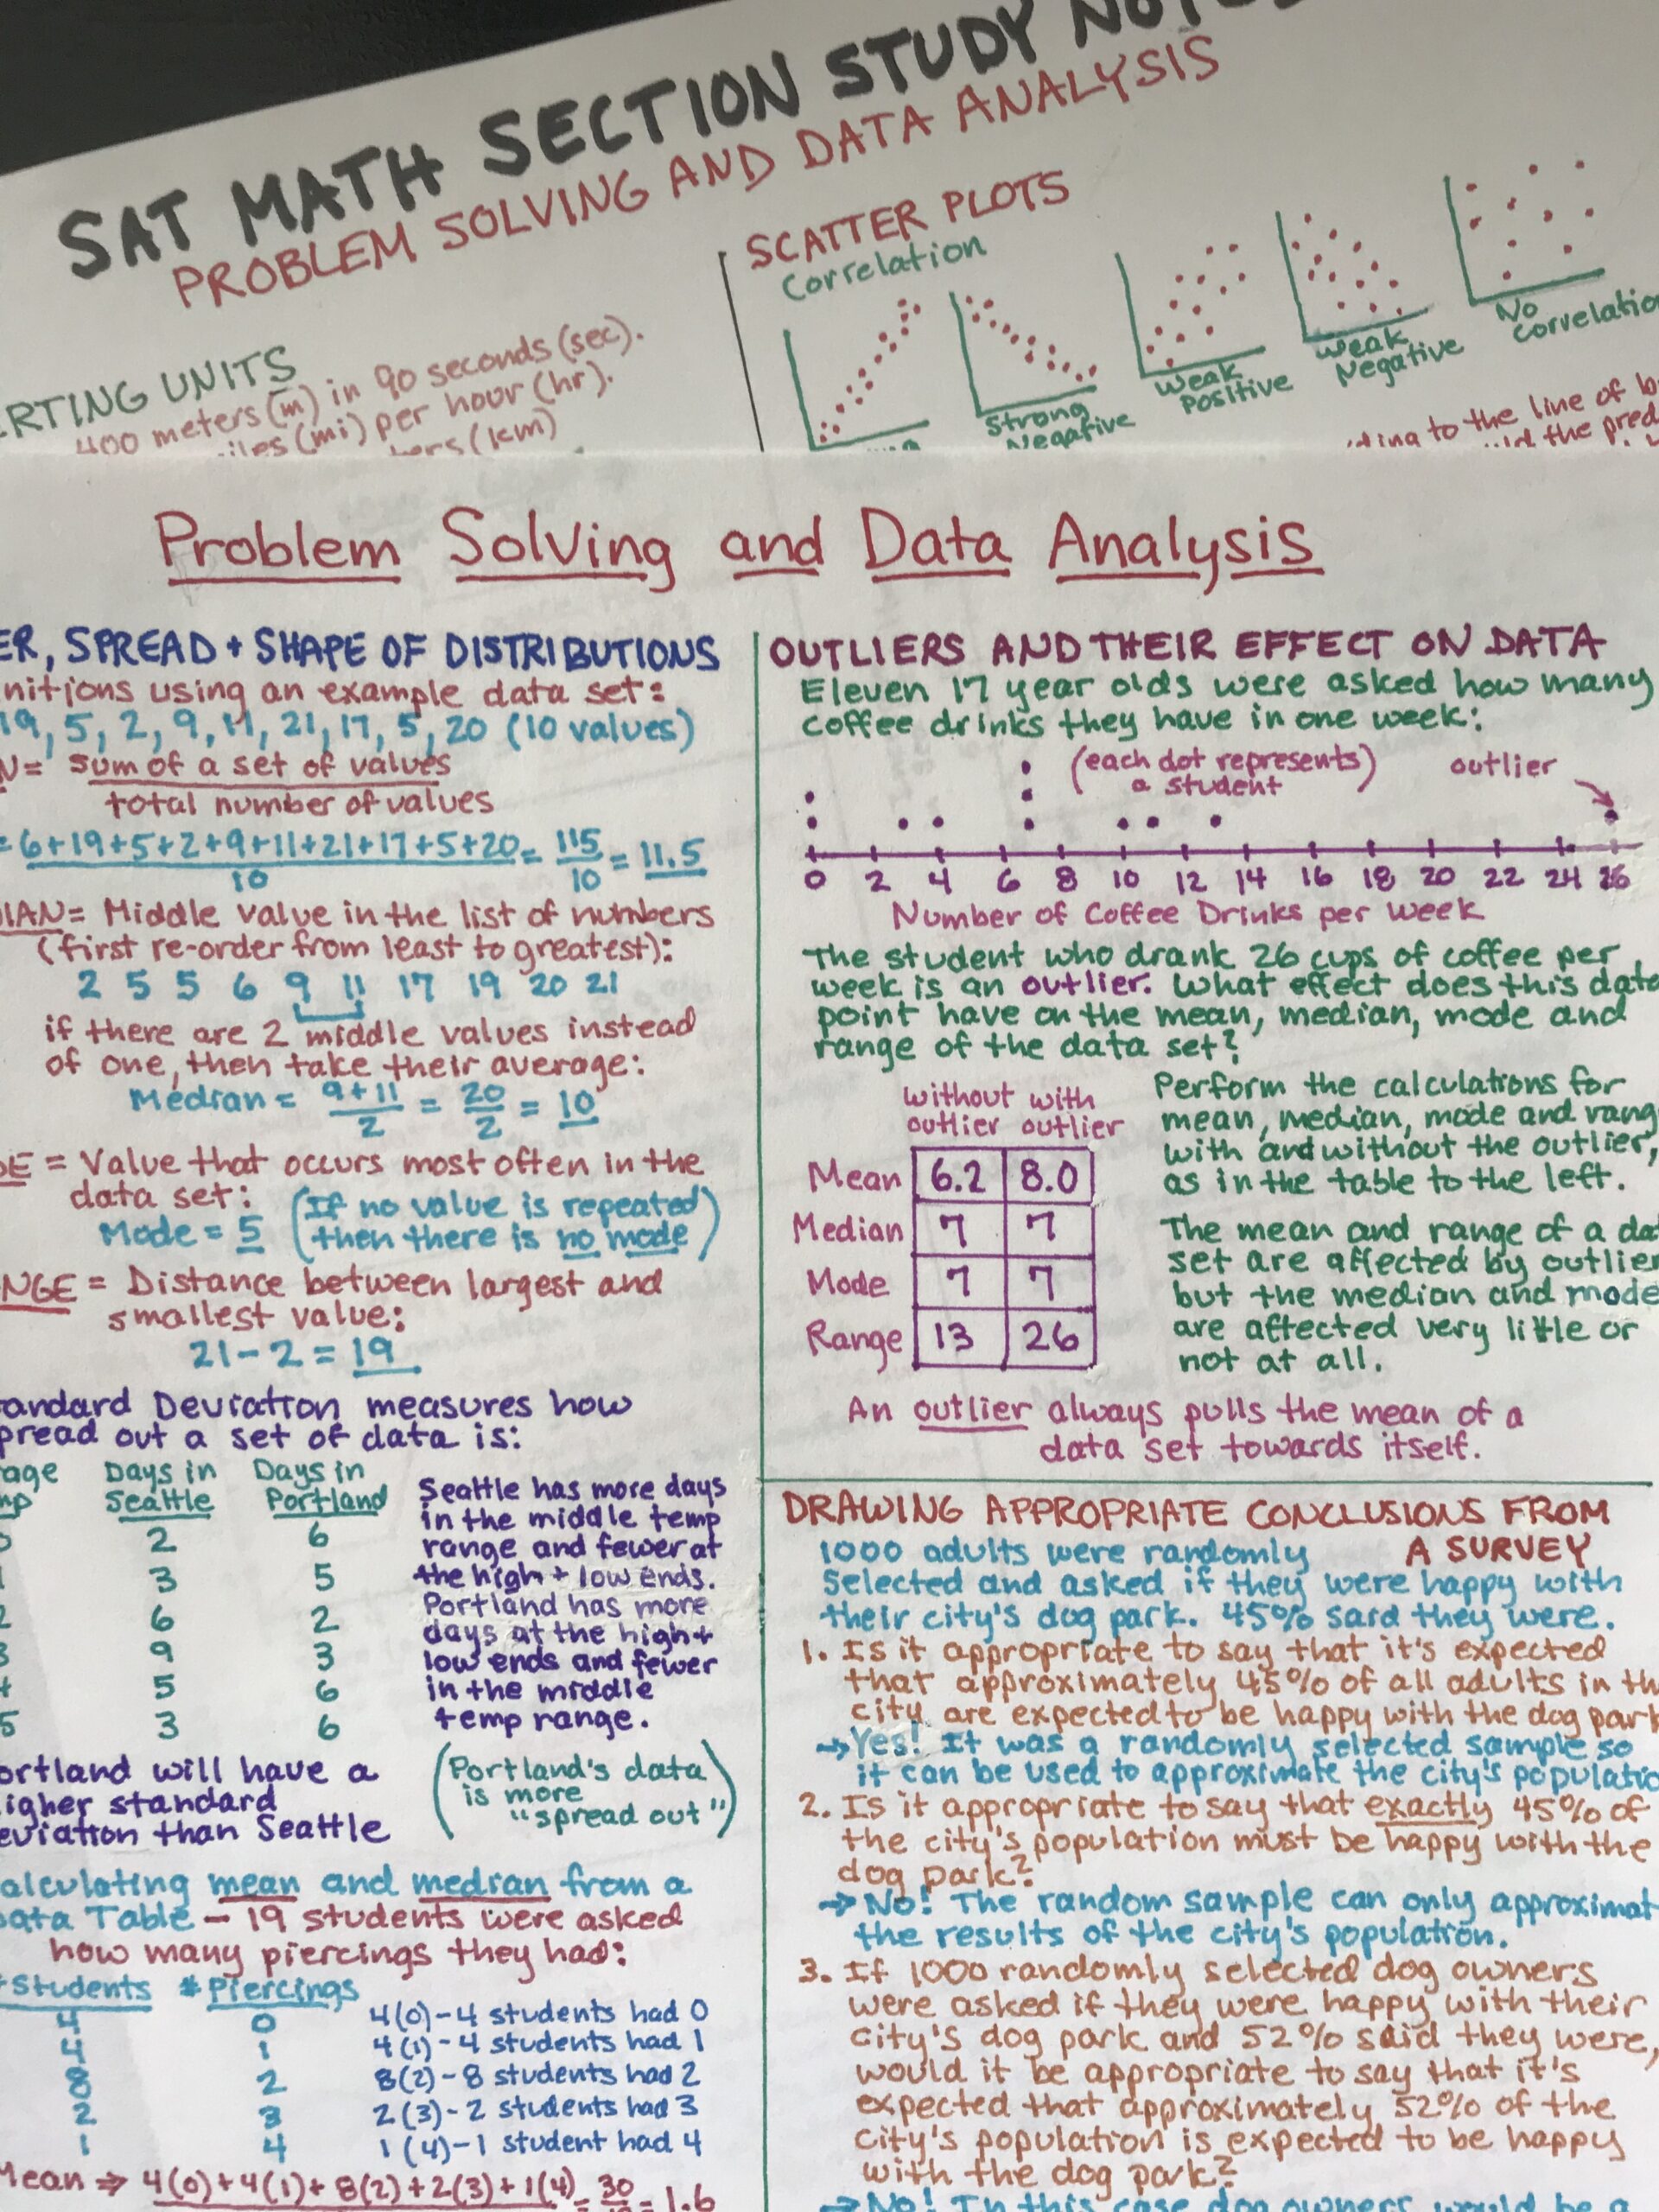 SAT MATH SECTION STUDY
PROBLEM SOLVING AND DATA ANALYSIS
RTING UNITS
400 meters (m) in 90 seconds (sec).
iles (mi) per hour (hr).
(km)
SCATTER PLOTS
Correlation
Strong
Negative
Weak
Positive
Weak
Negative
No
Correlatio
to the line of b
the pred
Problem Solving and Data Analysis
ER, SPREAD + SHAPE OF DISTRIBUTIONS
nitions using an example data set:
19, 5, 2, 9, 11, 21, 17, 5, 20 (10 values)
N = sum of a set of values
total number of values
= 6+19+5+2+9+11+21+17+5+20 = 115 = 11.5
10 10
IAN = Middle value in the list of numbers
(first re-order from least to greatest):
2 5 5 6 9 11 17 19 20 21
if there are 2 middle values instead
of one, then take their average:
Median = 9+11 = 20 = 10
2 2
DE = Value that occurs most often in the
data set: (If no value is repeated
Mode = 5 then there is no mode)
NGE = Distance between largest and
smallest value:
21 - 2 = 19
andard Deviation measures how
pread out a set of data is:
age Days in Days in
mp Seattle Portland
0 2 6
1 3 5
2 6 2
3 9 3
4 5 6
5 3 6
Seattle has more days
in the middle temp
range and fewer at
the high + low ends.
Portland has more
days at the high +
low ends and fewer
in the middle
temp range.
ortland will have a
igher standard
eviation than Seattle
(Portland's data
is more
"spread out")
alculating mean and median from a
ata Table - 19 students were asked
how many piercings they had:
Students # Piercings
4 0 4(0) - 4 students had 0
4 1 4(1) - 4 students had 1
8 2 8(2) - 8 students had 2
2 3 2(3) - 2 students had 3
1 4 1(4) - 1 student had 4
Mean ⇒ 4(0)+4(1)+8(2)+2(3)+1(4) = 30 = 1.6
OUTLIERS AND THEIR EFFECT ON DATA
Eleven 17 year olds were asked how many
coffee drinks they have in one week:
(each dot represents
a student)
outlier
0 2 4 6 8 10 12 14 16 18 20 22 24 26
Number of Coffee Drinks per week
The student who drank 26 cups of coffee per
week is an outlier. What effect does this data
point have on the mean, median, mode and
range of the data set?
without with
outlier outlier
Mean 6.2 8.0
Median 7 7
Mode 7 7
Range 13 26
Perform the calculations for
mean, median, mode and rang
with and without the outlier,
as in the table to the left.
The mean and range of a da
set are affected by outlier
but the median and mode
are affected very little or
not at all.
An outlier always pulls the mean of a
data set towards itself.
DRAWING APPROPRIATE CONCLUSIONS FROM
A SURVEY
1000 adults were randomly
selected and asked if they were happy with
their city's dog park. 45% said they were.
1. Is it appropriate to say that it's expected
that approximately 45% of all adults in th
city are expected to be happy with the dog park
→ Yes! It was a randomly selected sample so
it can be used to approximate the city's populatio
2. Is it appropriate to say that exactly 45% of
the city's population must be happy with the
dog park?
→ No! The random sample can only approximat
the results of the city's population.
3. If 1000 randomly selected dog owners
were asked if they were happy with their
city's dog park and 52% said they were,
would it be appropriate to say that it's
expected that approximately 52% of the
city's population is expected to be happy
with the dog park?
→ No! In this case dog owners would be a